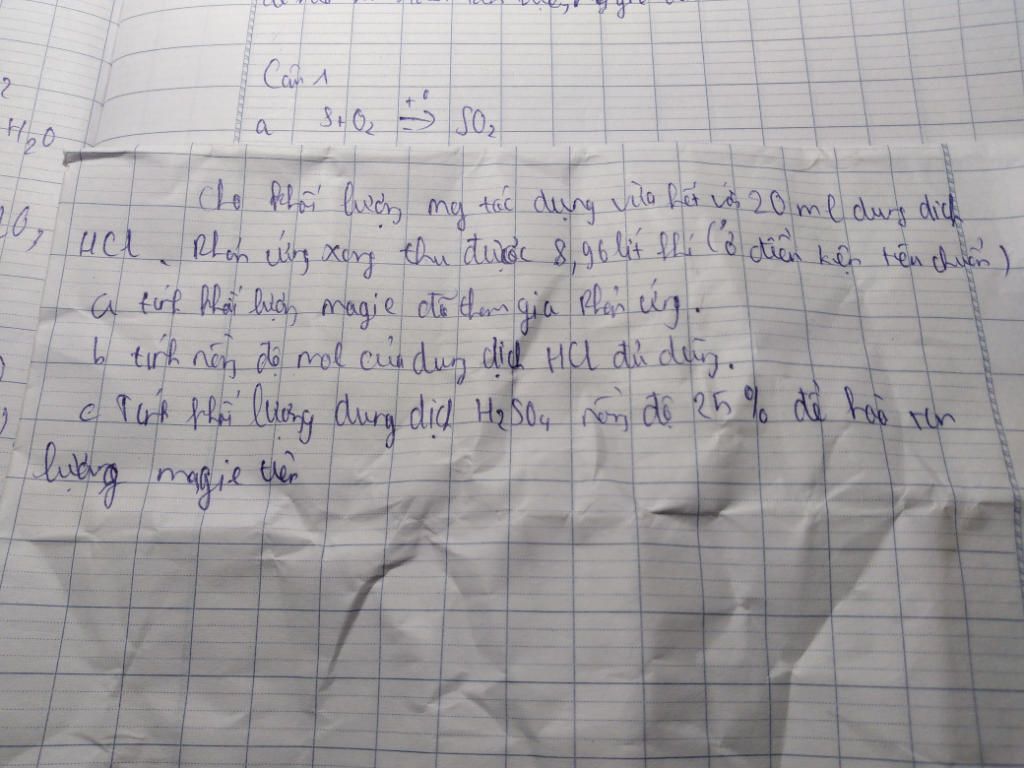 Câu 1
a S+O₂ ⇒ SO₂
H₂O
Cho khối lượng mg tác dụng vừa hết với 20 ml dung dịch
HCl. Phản ứng xong thu được 8,96 lít khí (ở điều kiện tiêu chuẩn)
a tính khối lượng magie đã tham gia phản ứng.
b tính nồng độ mol của dung dịch HCl đã dùng.
c Tính khối lượng dung dịch H₂SO₄ nồng độ 25% để hoà tan
lượng magie trên